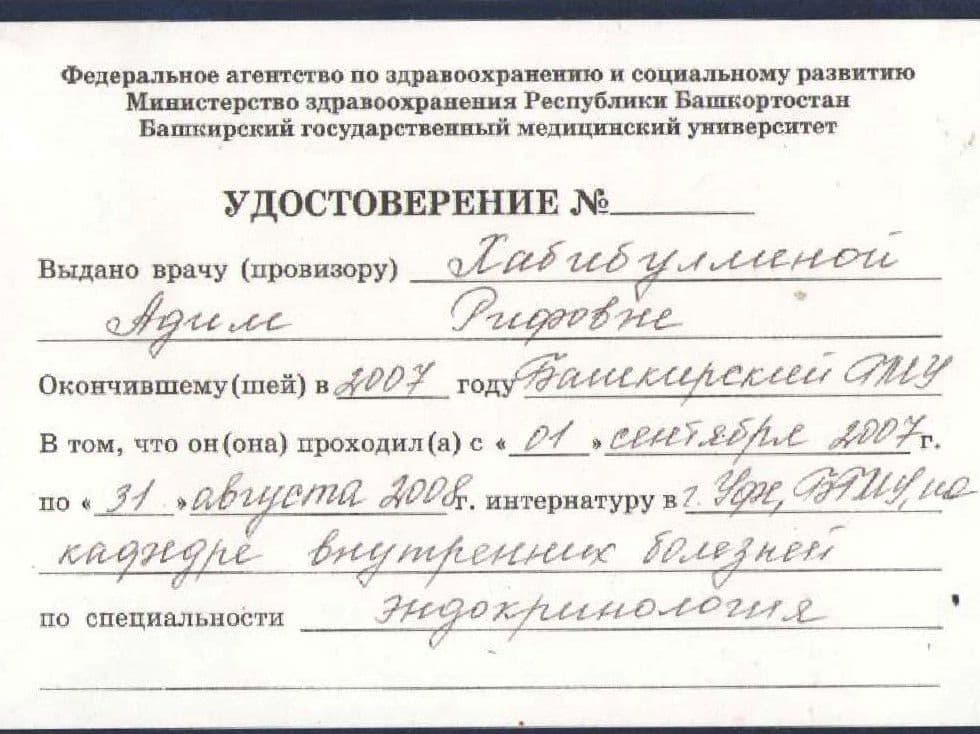 Федеральное агентство по здравоохранению и социальному развитию
Министерство здравоохранения Республики Башкортостан
Башкирский государственный медицинский университет
УДОСТОВЕРЕНИЕ №
Выдано врачу (провизору) Хабибуллиной
Адиле Рифовне
Окончившему(шей) в 2007 году Башкирский ГМУ
В том, что он(она) проходил(а) с « 01 » сентября 2007 г.
по « 31 » августа 2008 г. интернатуру в г. Уфе, БГМУ, на
кафедре внутренних болезней
по специальности эндокринология